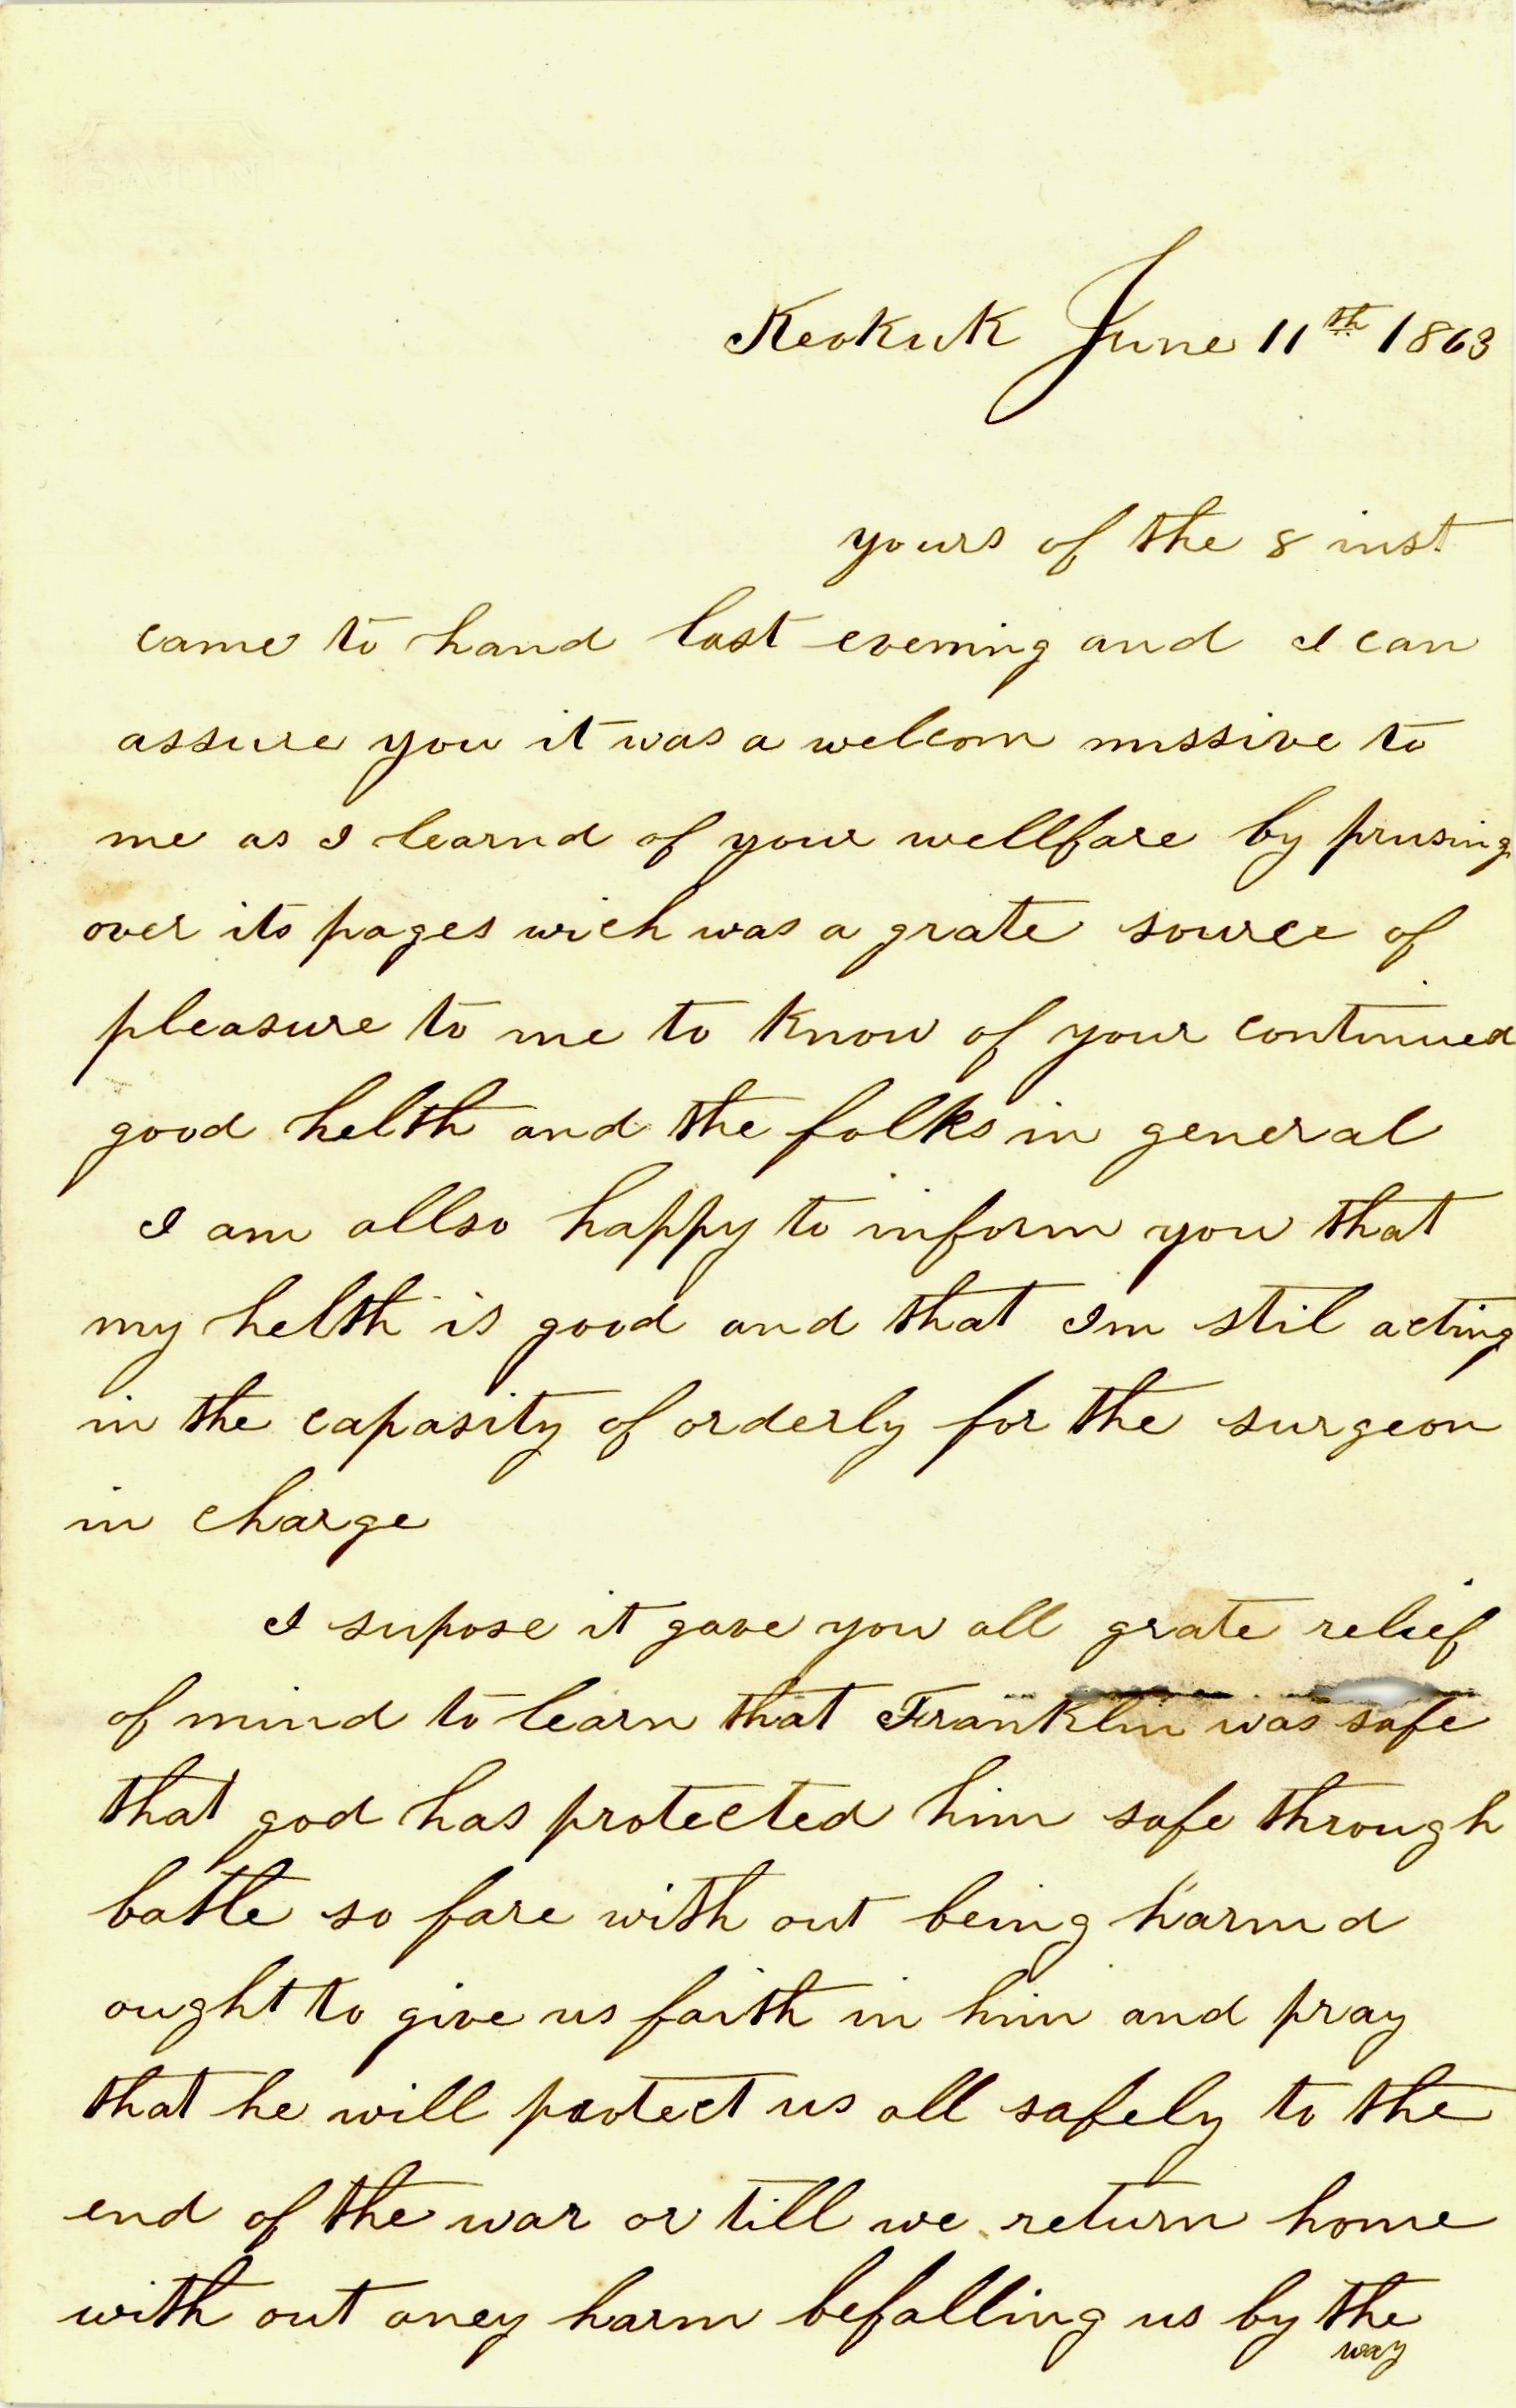 Keokuk June 11th 1863
yours of the 8 inst
came to hand last evening and I can
assure you it was a welcom missive to
me as I learnd of your wellfare by prusing
over its pages wich was a grate source of
pleasure to me to know of your continued
good helth and the folks in general
I am allso happy to inform you that
my helth is good and that Im stil acting
in the capasity of orderly for the surgeon
in charge
I supose it gave you all grate relief
of mind to learn that Franklin was safe
that god has protected him safe through
battle so fare with out being harmd
ought to give us faith in him and pray
that he will protect us all safely to the
end of the war or till we return home
with out aney harm befalling us by the
way